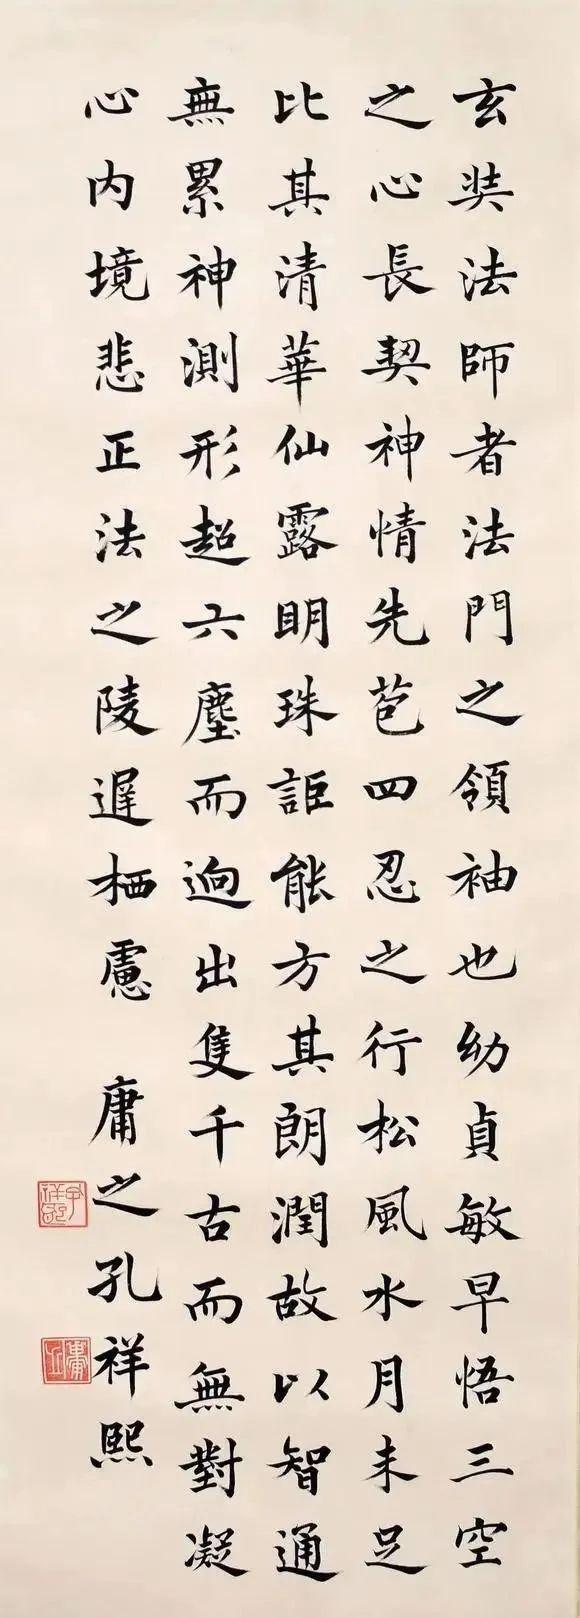 玄奘法師者法門之領袖也幼貞敏早悟三空
之心長契神情先苞四忍之行松風水月未足
比其清華仙露明珠詎能方其朗潤故以智通
無累神測形超六塵而逈出隻千古而無對凝
心内境悲正法之陵遲栖慮
庸之孔祥熙